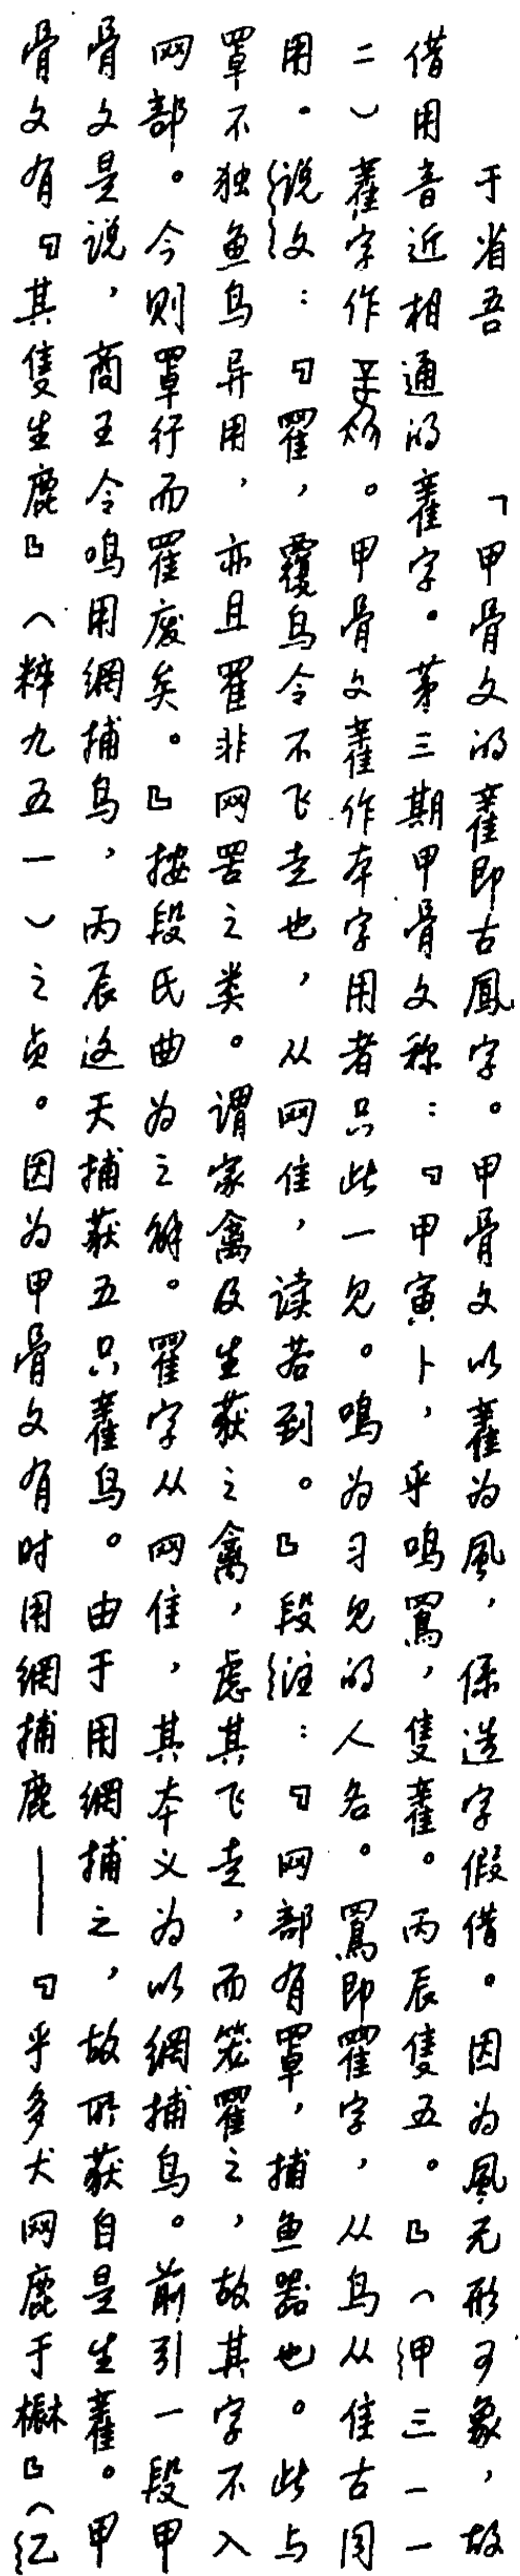 于省吾 「甲骨文的雚即古鳳字。甲骨文以雚为風，係造字假借。因为風无形可象，故
借用音近相通的雚字。第三期甲骨文称：『甲寅卜，乎鳴罵，隻雚。丙辰隻五。』（甲三一一
二）雚字作。甲骨文雚作本字用者只此一见。鳴为习见的人名。罵即罹字，从鸟从隹古同
用。说文：『罹，覆鸟令不飞走也，从网隹，读若到。』段注：『网部有罩，捕鱼器也。此与
罩不独鱼鸟异用，亦且罹非网罟之类。谓家禽及生获之禽，虑其飞走，而笼罹之，故其字不入
网部。今则罩行而罹废矣。』按段氏曲为之解。罹字从网隹，其本义为以網捕鸟。前引一段甲
骨文是说，商王令鳴用網捕鸟，丙辰这天捕获五只雚鸟。由于用網捕之，故所获自是生雚。甲
骨文有『其隻生鹿』（粹九五一）之贞。因为甲骨文有时用網捕鹿——『乎多犬网鹿于𣓤』（纪